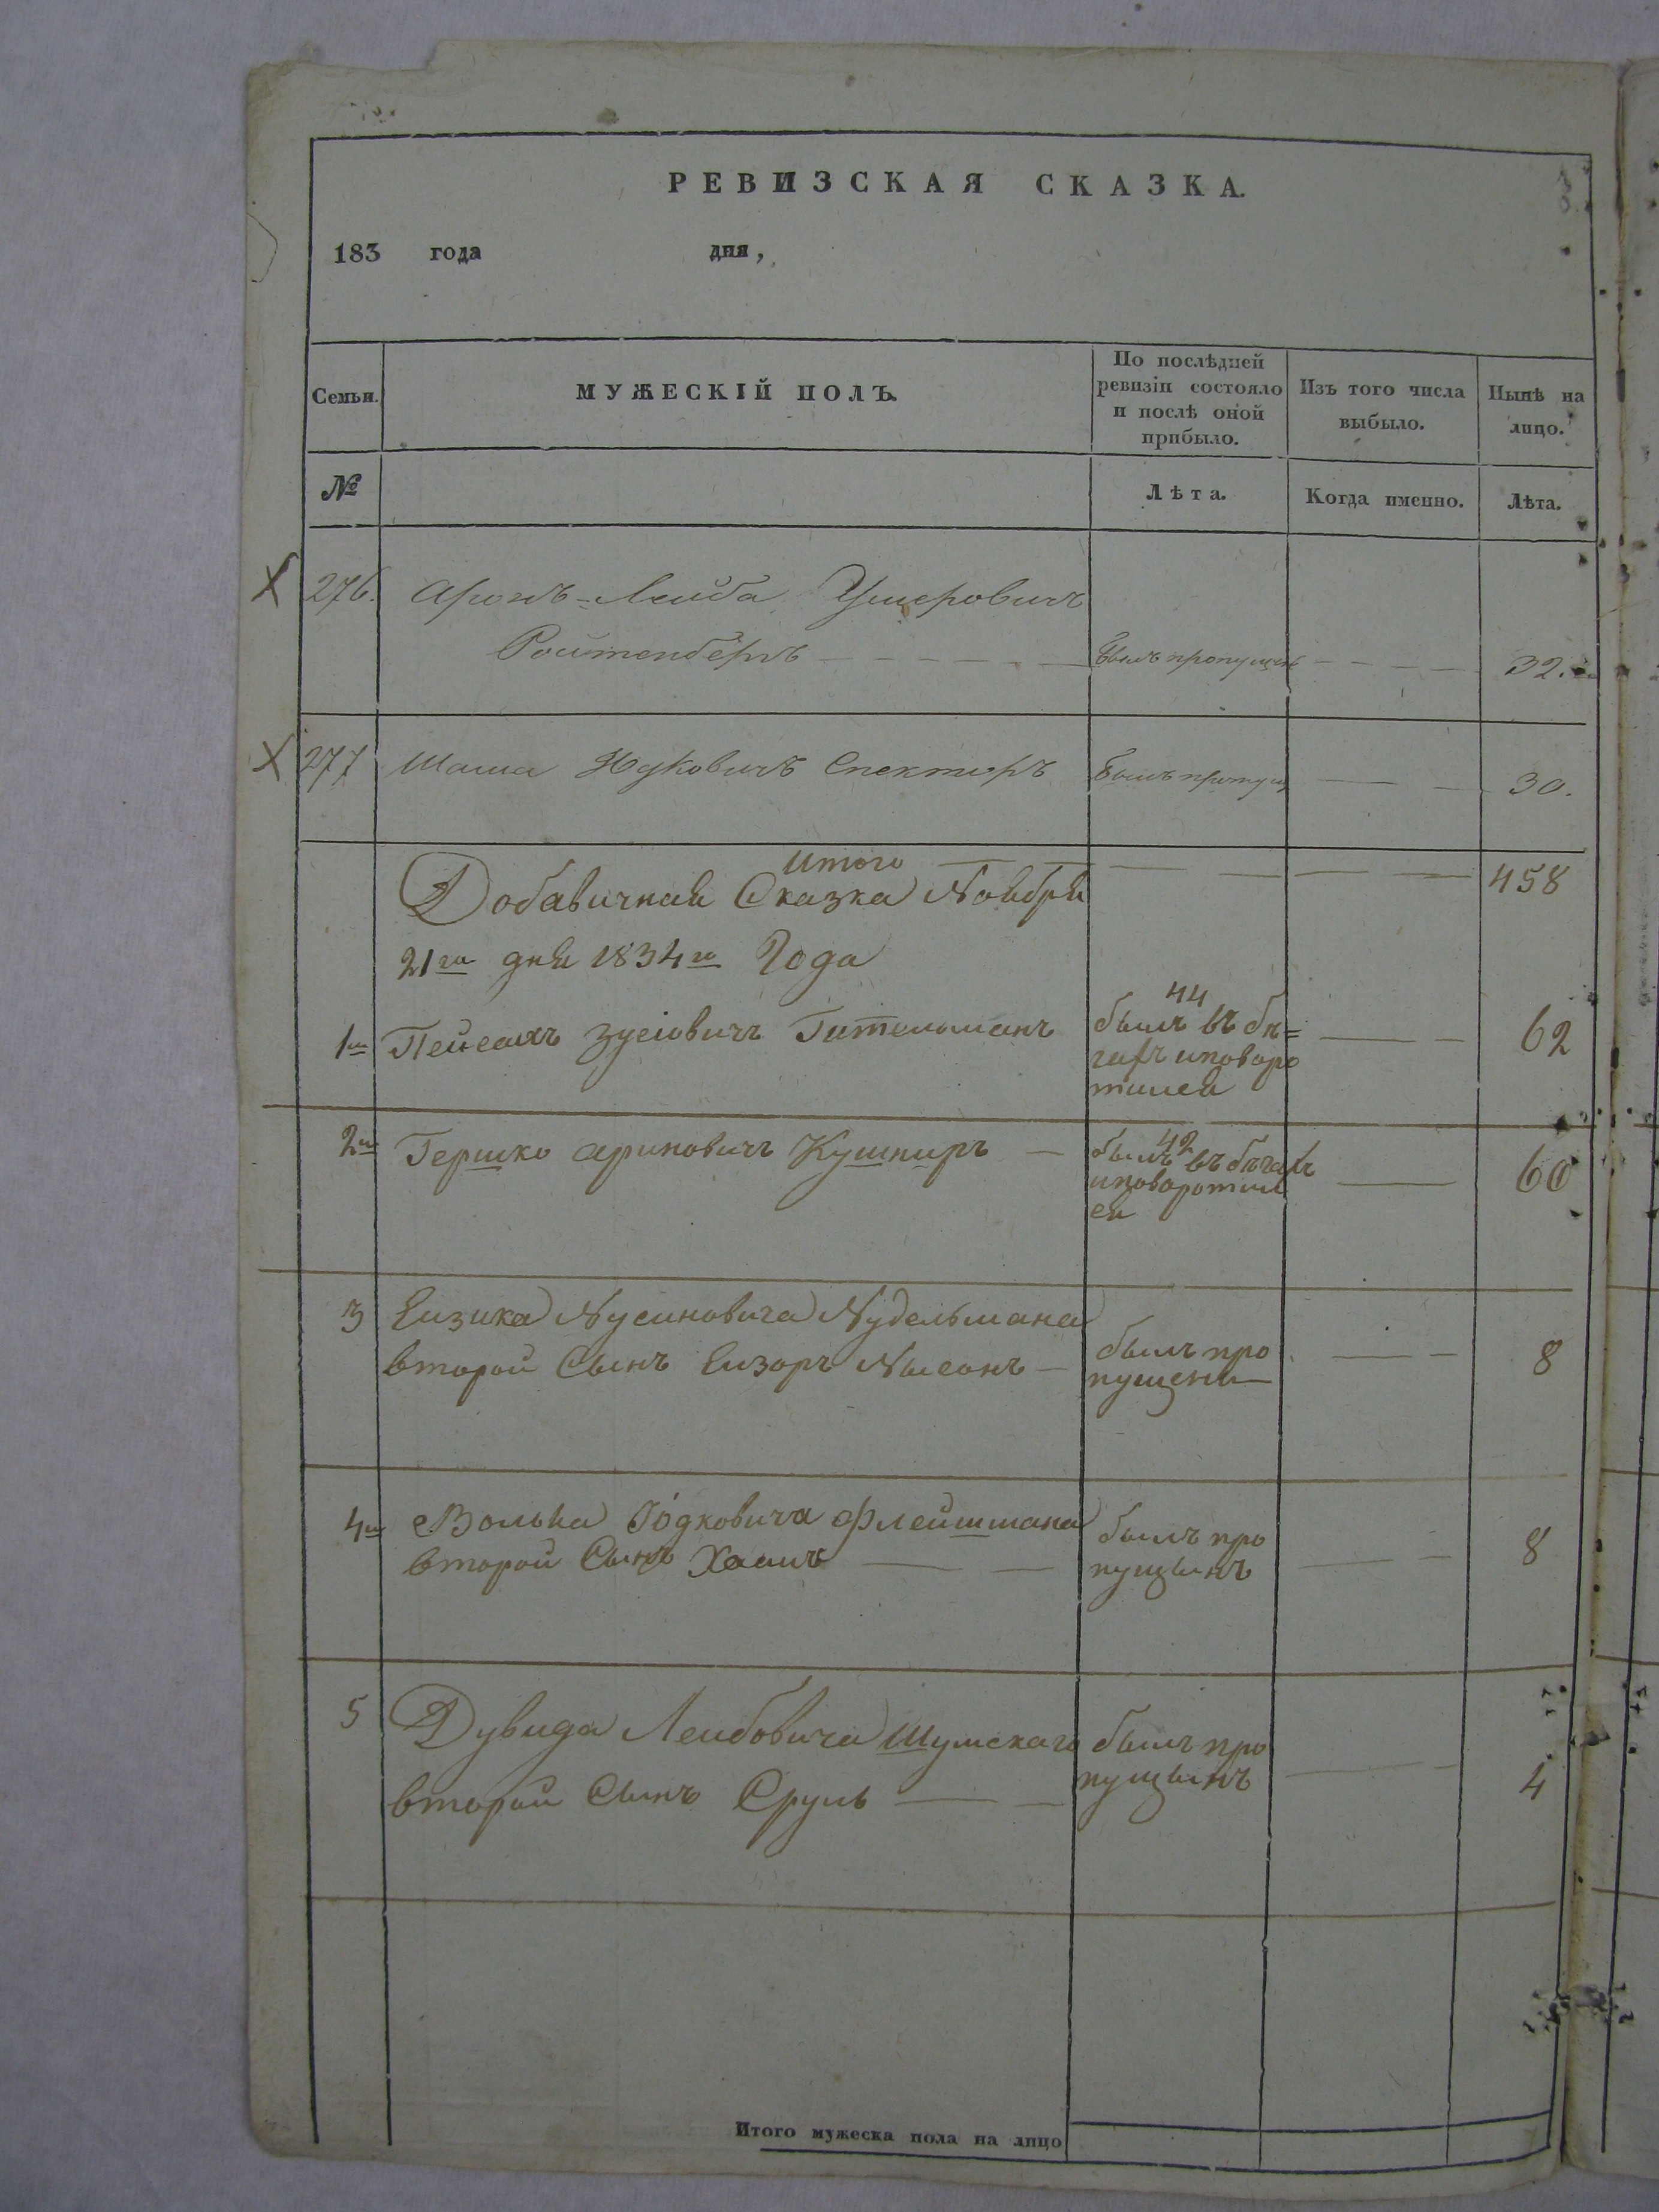 РЕВИЗСКАЯ СКАЗКА.
183 года дня,
Семьи.
МУЖЕСКІЙ ПОЛЪ.
По послѣдней
ревизіи состояло
и послѣ оной
прибыло.
Изъ того числа
выбыло.
Нынѣ на
лицо.
№
Лѣта.
Когда именно.
Лѣта.
Х 276. Аронъ-Лейба
Ройтенбергъ былъ пропущенъ 32.
Х 277 Шая Юдковичъ Спекторъ былъ пропущ 30.
Итого 458
Добавичная Сказка Ноября
21го дня 1834го Года
1й Пейсахъ Зусіовичъ Гительманъ 44 былъ въ бѣ= 62
гахъ иповоро
тился
2й Гершко Ариновичъ Кушниръ 42 былъ въ бѣгахъ 60
иповоротил
ся
3 Еизика Нусиновича Нудельмана
второй Сынъ Еизоръ Нысонъ былъ про 8
пущени
4й Волька Іодковича Флейшмана былъ про
второй Сынъ Хаимъ пущынъ 8
5 Дувида Леибовича Шумскаго былъ про
второй Сынъ Сруль пущынъ 4
Итого мужеска пола на лицо